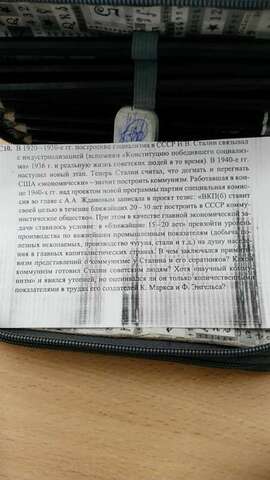 С10. В 1920–1930-е гг. построение социализма в СССР И.В. Сталин связывал
с индустриализацией (вспомним «Конституцию победившего социализ-
ма» 1936 г. и реальную жизнь советских людей в то время). В 1940-е гг.
наступил новый этап. Теперь Сталин считал, что догнать и перегнать
США «экономически» – значит построить коммунизм. Работавшая в кон-
це 1940-х гг. над проектом новой программы партии специальная комис-
сия во главе с А.А. Ждановым записала в проект тезис: «ВКП(б) ставит
своей целью в течение ближайших 20–30 лет построить в СССР комму-
нистическое общество». При этом в качестве главной экономической за-
дачи ставилось условие: в «ближайшие 15–20 лет» превзойти уровень
производства по важнейшим промышленным показателям (добыча по-
лезных ископаемых, производство чугуна, стали и т.д.) на душу населе-
ния в главных капиталистических странах. В чем заключался примити-
визм представлений о коммунизме у Сталина и его соратников? Какой
коммунизм готовил Сталин советским людям? Хотя «научный комму-
низм» и явился утопией, но оценивался ли он только количественными
показателями в трудах его создателей К. Маркса и Ф. Энгельса?